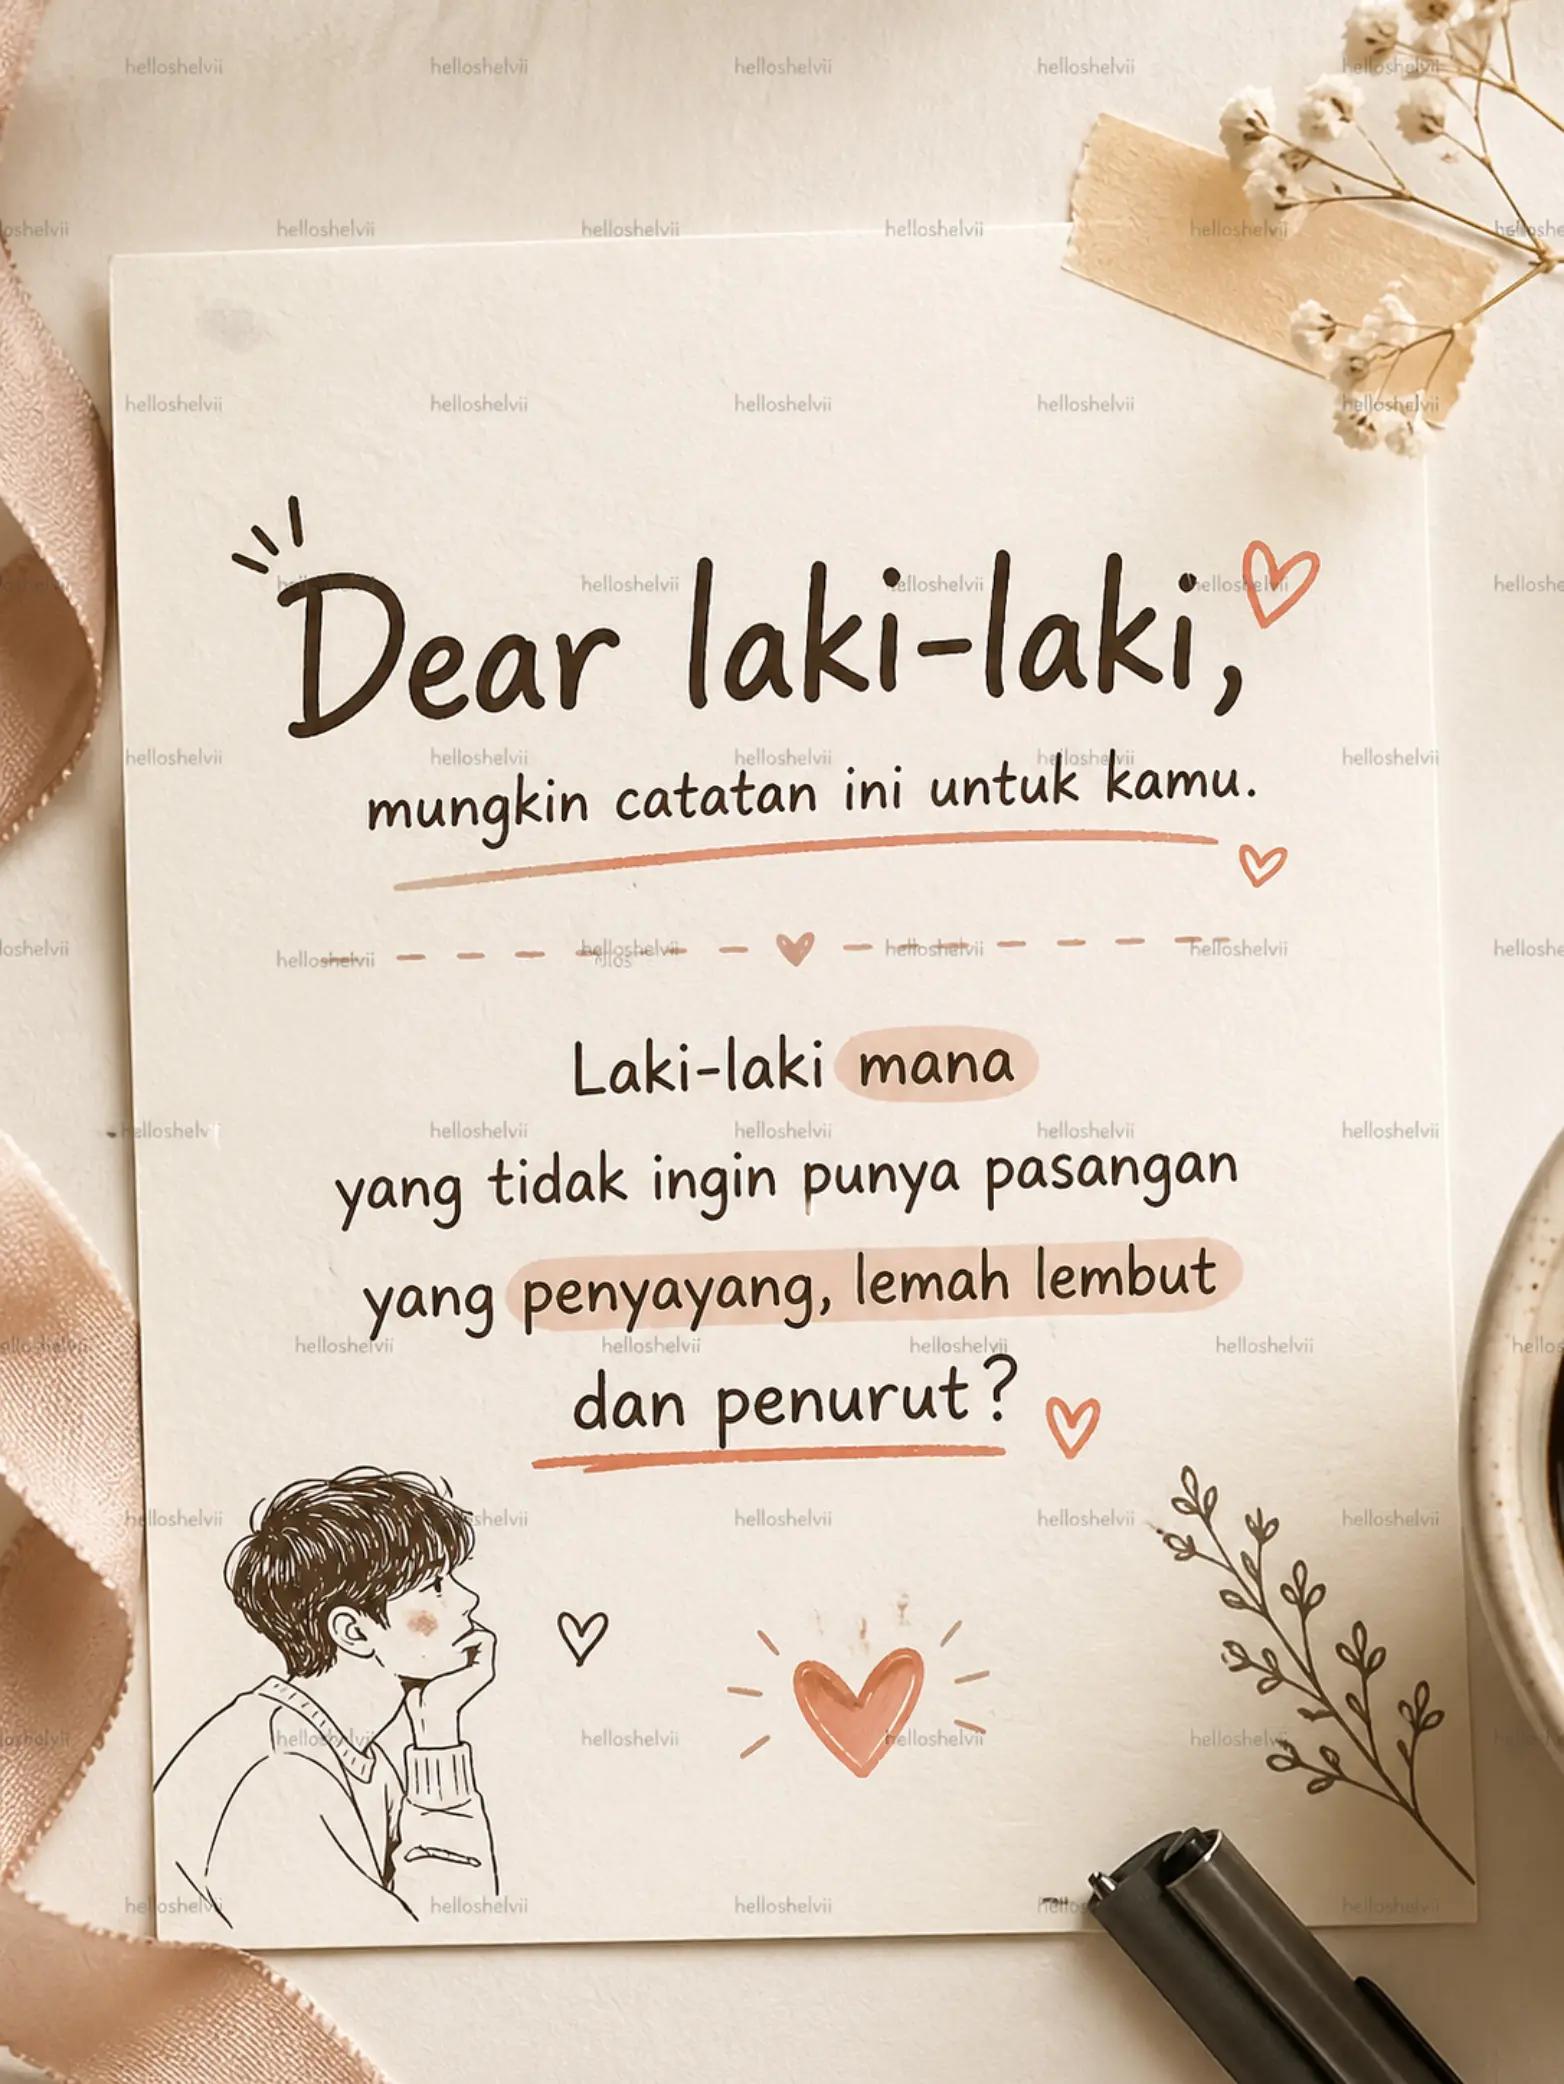 Dear laki-laki,
mungkin catatan ini untuk kamu.
Laki-laki mana
yang tidak ingin punya pasangan
yang penyayang, lemah lembut
dan penurut?
helloshelvii